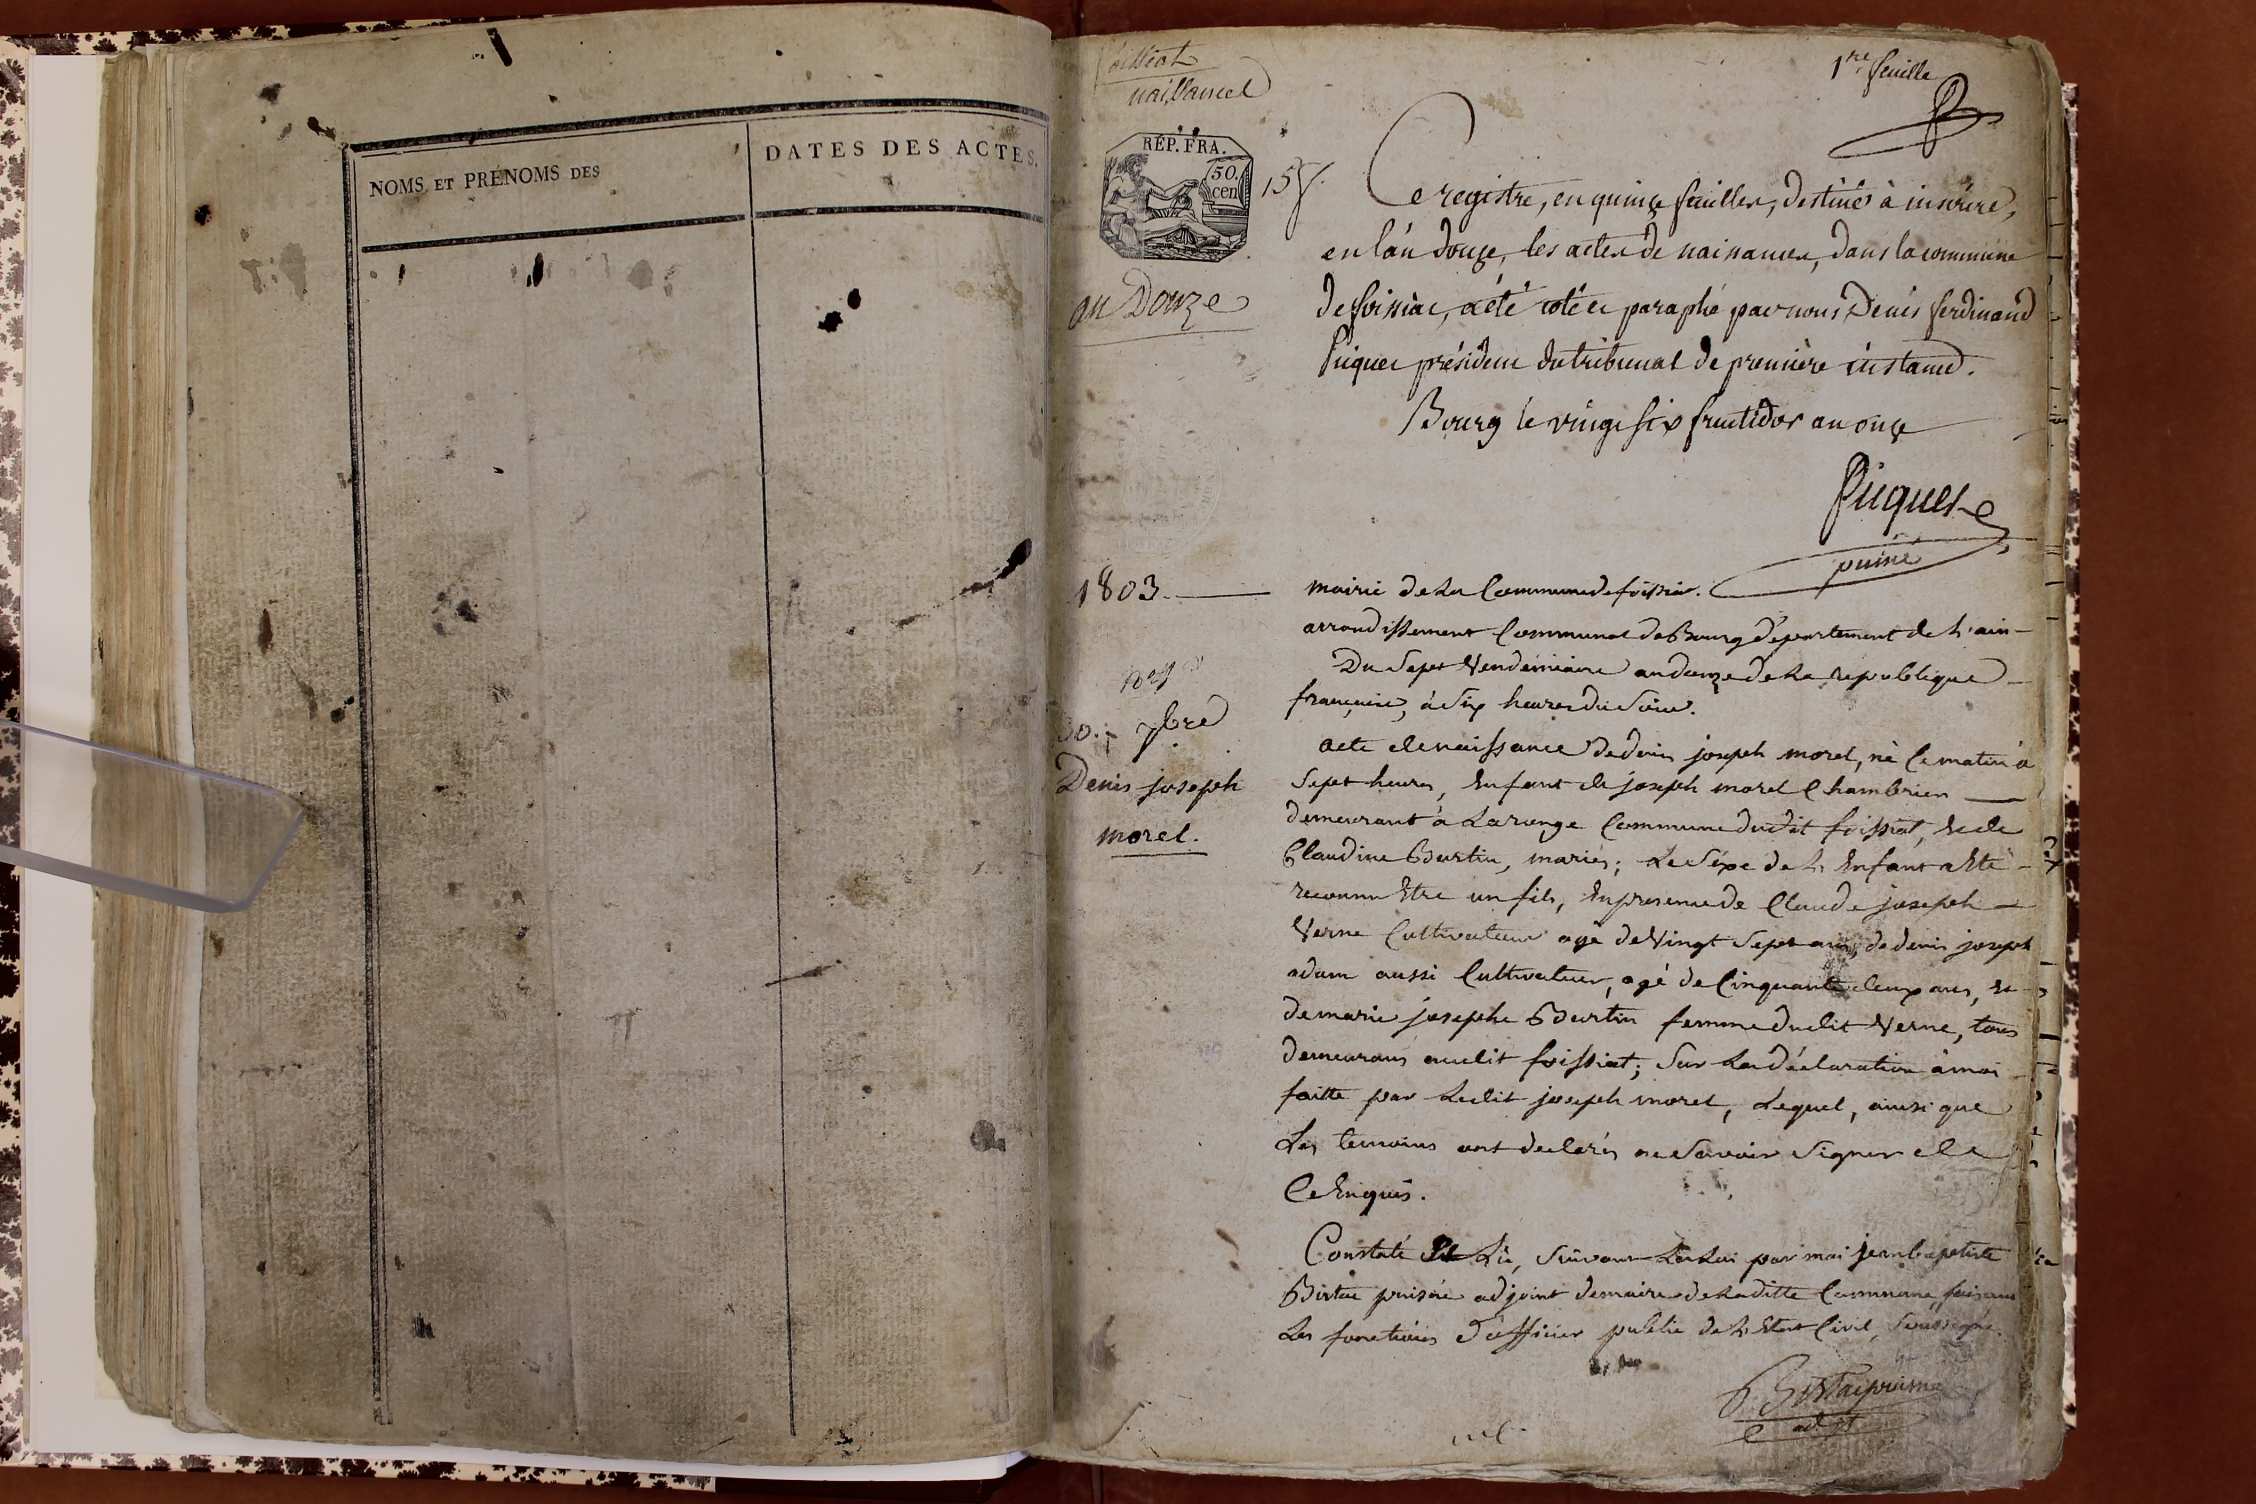 NOMS ET PRÉNOMS DES
DATES DES ACTES.
foissiat
naissances
1re feuille
RÉP. FRA.
50.
cen
15 f.
an Douze
Ce registre, en quinze feuilles, destiné à inscrire,
en l'an douze, les actes de naissances, dans la commune
de foissiac, a été coté et paraphé par nous Denis ferdinand
Piquet président du tribunal de première instance.
Bourg le vingt six fructidor an onze
Piquet
puiné
1803.
30. 7bre
Denis joseph
morel.
mairie de La Commune de foissiat.
arrondissement Communal de Bourg département de L'ain
Du Sept Vendemiaire an douze de La republique
française, à Six heures du Soir.
acte de naissance de denis joseph morel, né Ce matin à
Sept heures, Enfant de joseph morel Chambrier
demeurant à Laronge Commune dudit foissiat, Et de
Claudine Burtin, mariés; Le Séxe de L'Enfant a Eté
reconnu Etre un fils, En presence de Claude joseph
Verne Cultivateur agé de Vingt Sept ans, de denis joseph
adam aussi Cultivateur, agé de Cinquante deux ans, Et
de marie josephe Burtin femme dudit Verne, tous
demeurans audit foissiat; Sur La déclaration à moi
faitte par Ledit joseph morel, Lequel, ainsi que
Les temoins ont declarés ne Savoir Signer de
Ce Enquis.
Constaté Lû, Suivant La Loi par moi jean baptiste
adjoint de maire de Laditte Commune faisant
Les fonctions d'officier public de L'Etat Civil, Soussigné.
adjt